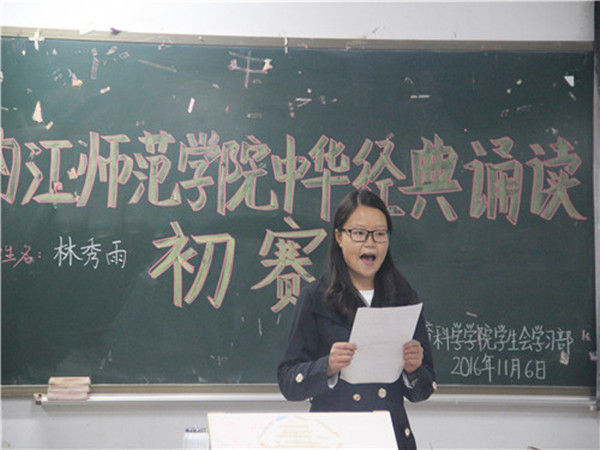 内江师范学院中华经典诵读
初赛
姓名：林秀雨
科学学院学生会学习部
2016年11月6日